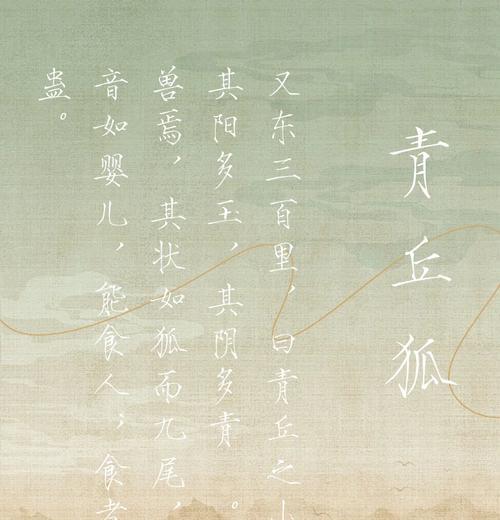 青丘狐
又东三百里，曰青丘之山
其阳多玉，其阴多青 。
兽焉，其状如狐而九尾，
音如婴儿，能食人；食者
蛊。